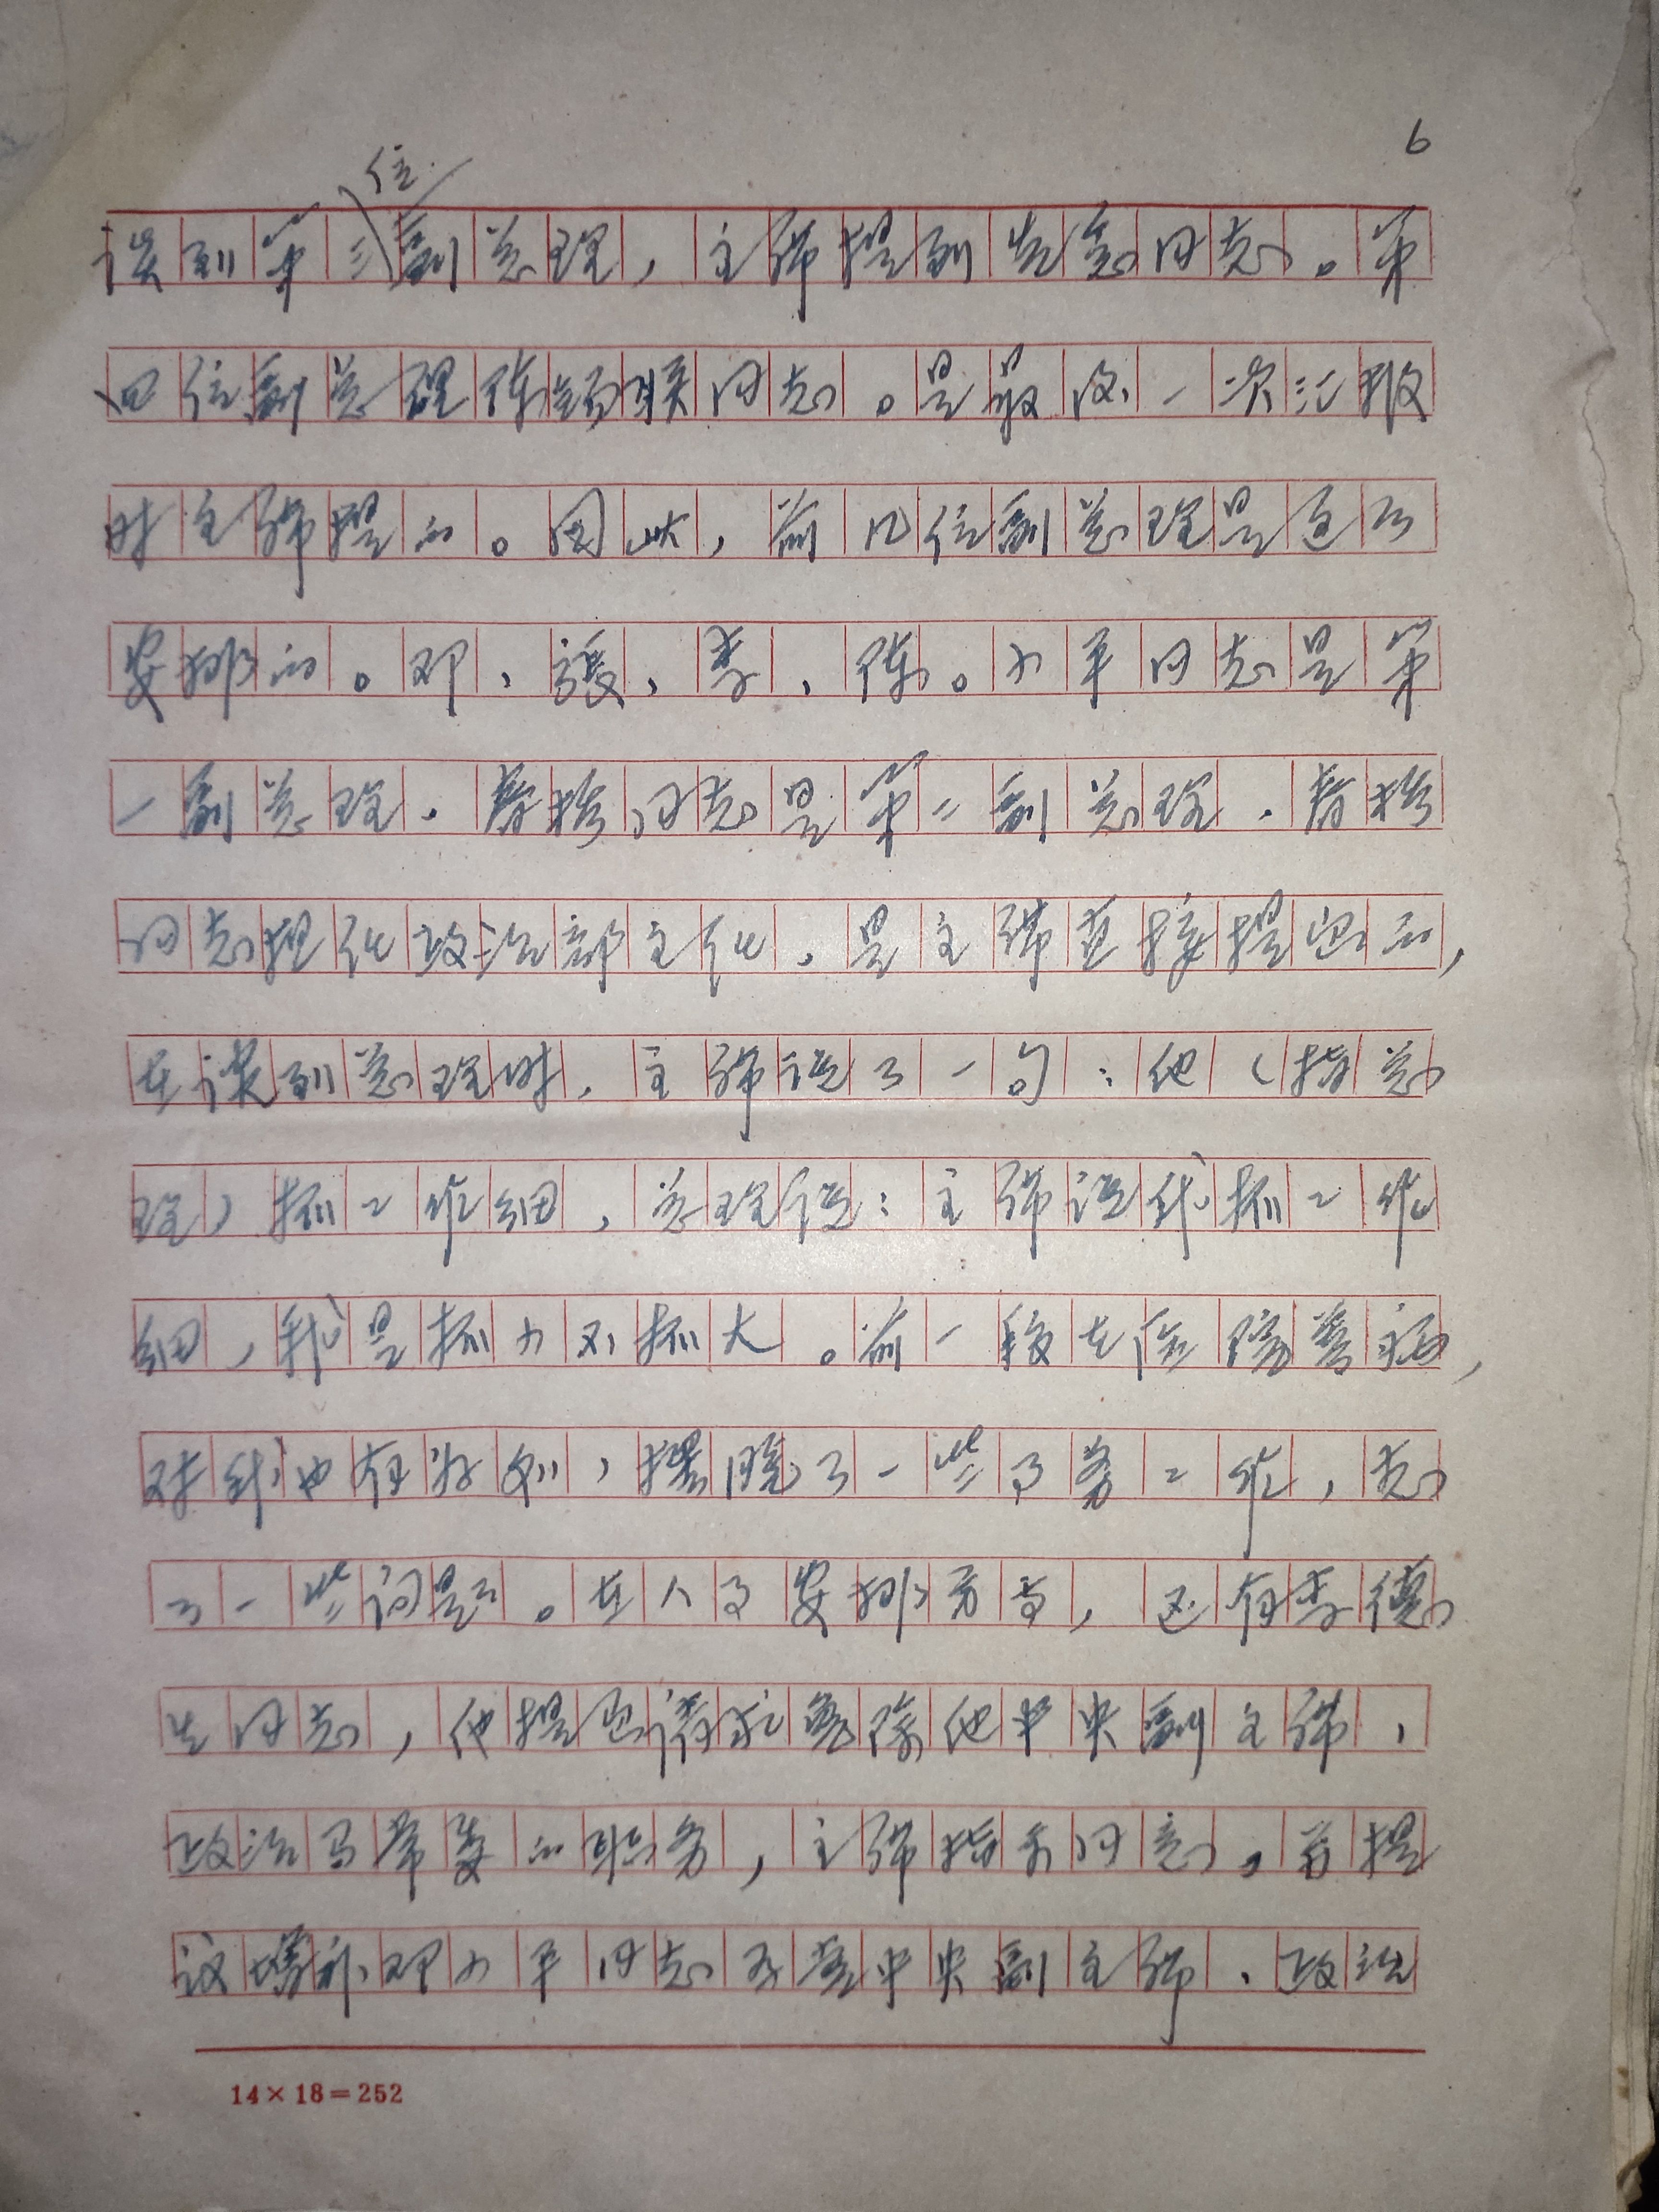 6
谈到第三位副总理，主席提到先念同志。第
四位副总理陈锡联同志。是最后一次汇报
时主席提的。因此，前几位副总理是这么
安排的。邓、张、李、陈。小平同志是第
一副总理。春桥同志是第二副总理。春桥
同志担任政治部主任，是主席直接提出的，
在谈到总理时，主席说了一句：他（指总
理）抓工作细，总理说：主席说我抓工作
细，我是抓小不抓大。前一段在医院养病，
对我也有好处，摆脱了一些事务工作，考虑
了一些问题。在人事安排方面，还有李德
生同志，他提出请求免除他中央副主席、
政治局常委的职务，主席指示同意。并提
议增补邓小平同志为党中央副主席、政治
14×18=252